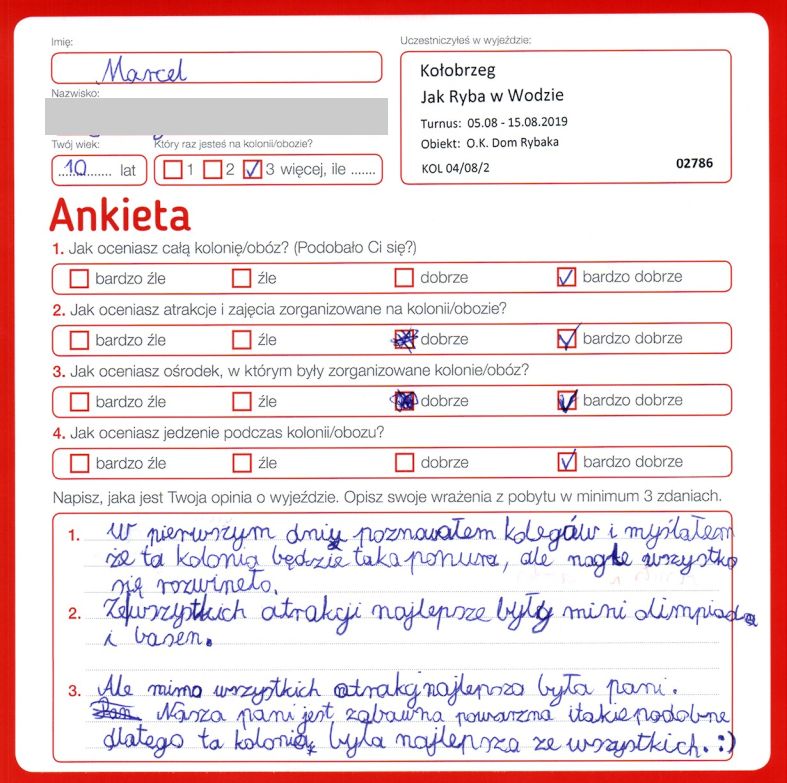 Imię:
Marcel
Nazwisko:
Twój wiek:
10 lat
Który raz jesteś na kolonii/obozie?
1 2 3 więcej, ile .......
Uczestniczyłeś w wyjeździe:
Kołobrzeg
Jak Ryba w Wodzie
Turnus: 05.08 - 15.08.2019
Obiekt: O.K. Dom Rybaka
KOL 04/08/2 02786
Ankieta
1. Jak oceniasz całą kolonię/obóz? (Podobało Ci się?)
bardzo źle źle dobrze bardzo dobrze
2. Jak oceniasz atrakcje i zajęcia zorganizowane na kolonii/obozie?
bardzo źle źle dobrze bardzo dobrze
3. Jak oceniasz ośrodek, w którym były zorganizowane kolonie/obóz?
bardzo źle źle dobrze bardzo dobrze
4. Jak oceniasz jedzenie podczas kolonii/obozu?
bardzo źle źle dobrze bardzo dobrze
Napisz, jaka jest Twoja opinia o wyjeździe. Opisz swoje wrażenia z pobytu w minimum 3 zdaniach.
1. W pierwszym dniu poznowałem kolegów i myślałem
że ta kolonia będzie taka ponura, ale nagle wszystko
się rozwineło.
2. Ze wszystkich atrakcji najlepsze były mini olimpiada
i basen.
3. Ale mimo wszystkich atrakcj najlepsza była pani.
Nasza pani jest zabawna powarzna i takie podobne
dlatego ta kolonia była najlepsza ze wszystkich. :)